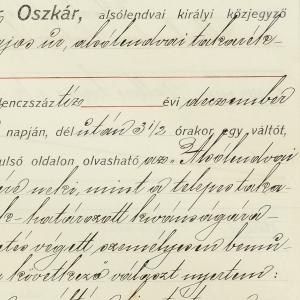 Oszkár, alsólendvai királyi közjegyző
úr, alsólendvai takarék-
lenczszáz tiz évi deczember
napján, délután 3 1/2 órakor, egy váltót,
ulsó oldalon olvasható az "Alsólendvai
neki, mint a telepes taka-
k határozott kivánságára
végett személyesen bemu-
következő választ nyertem: